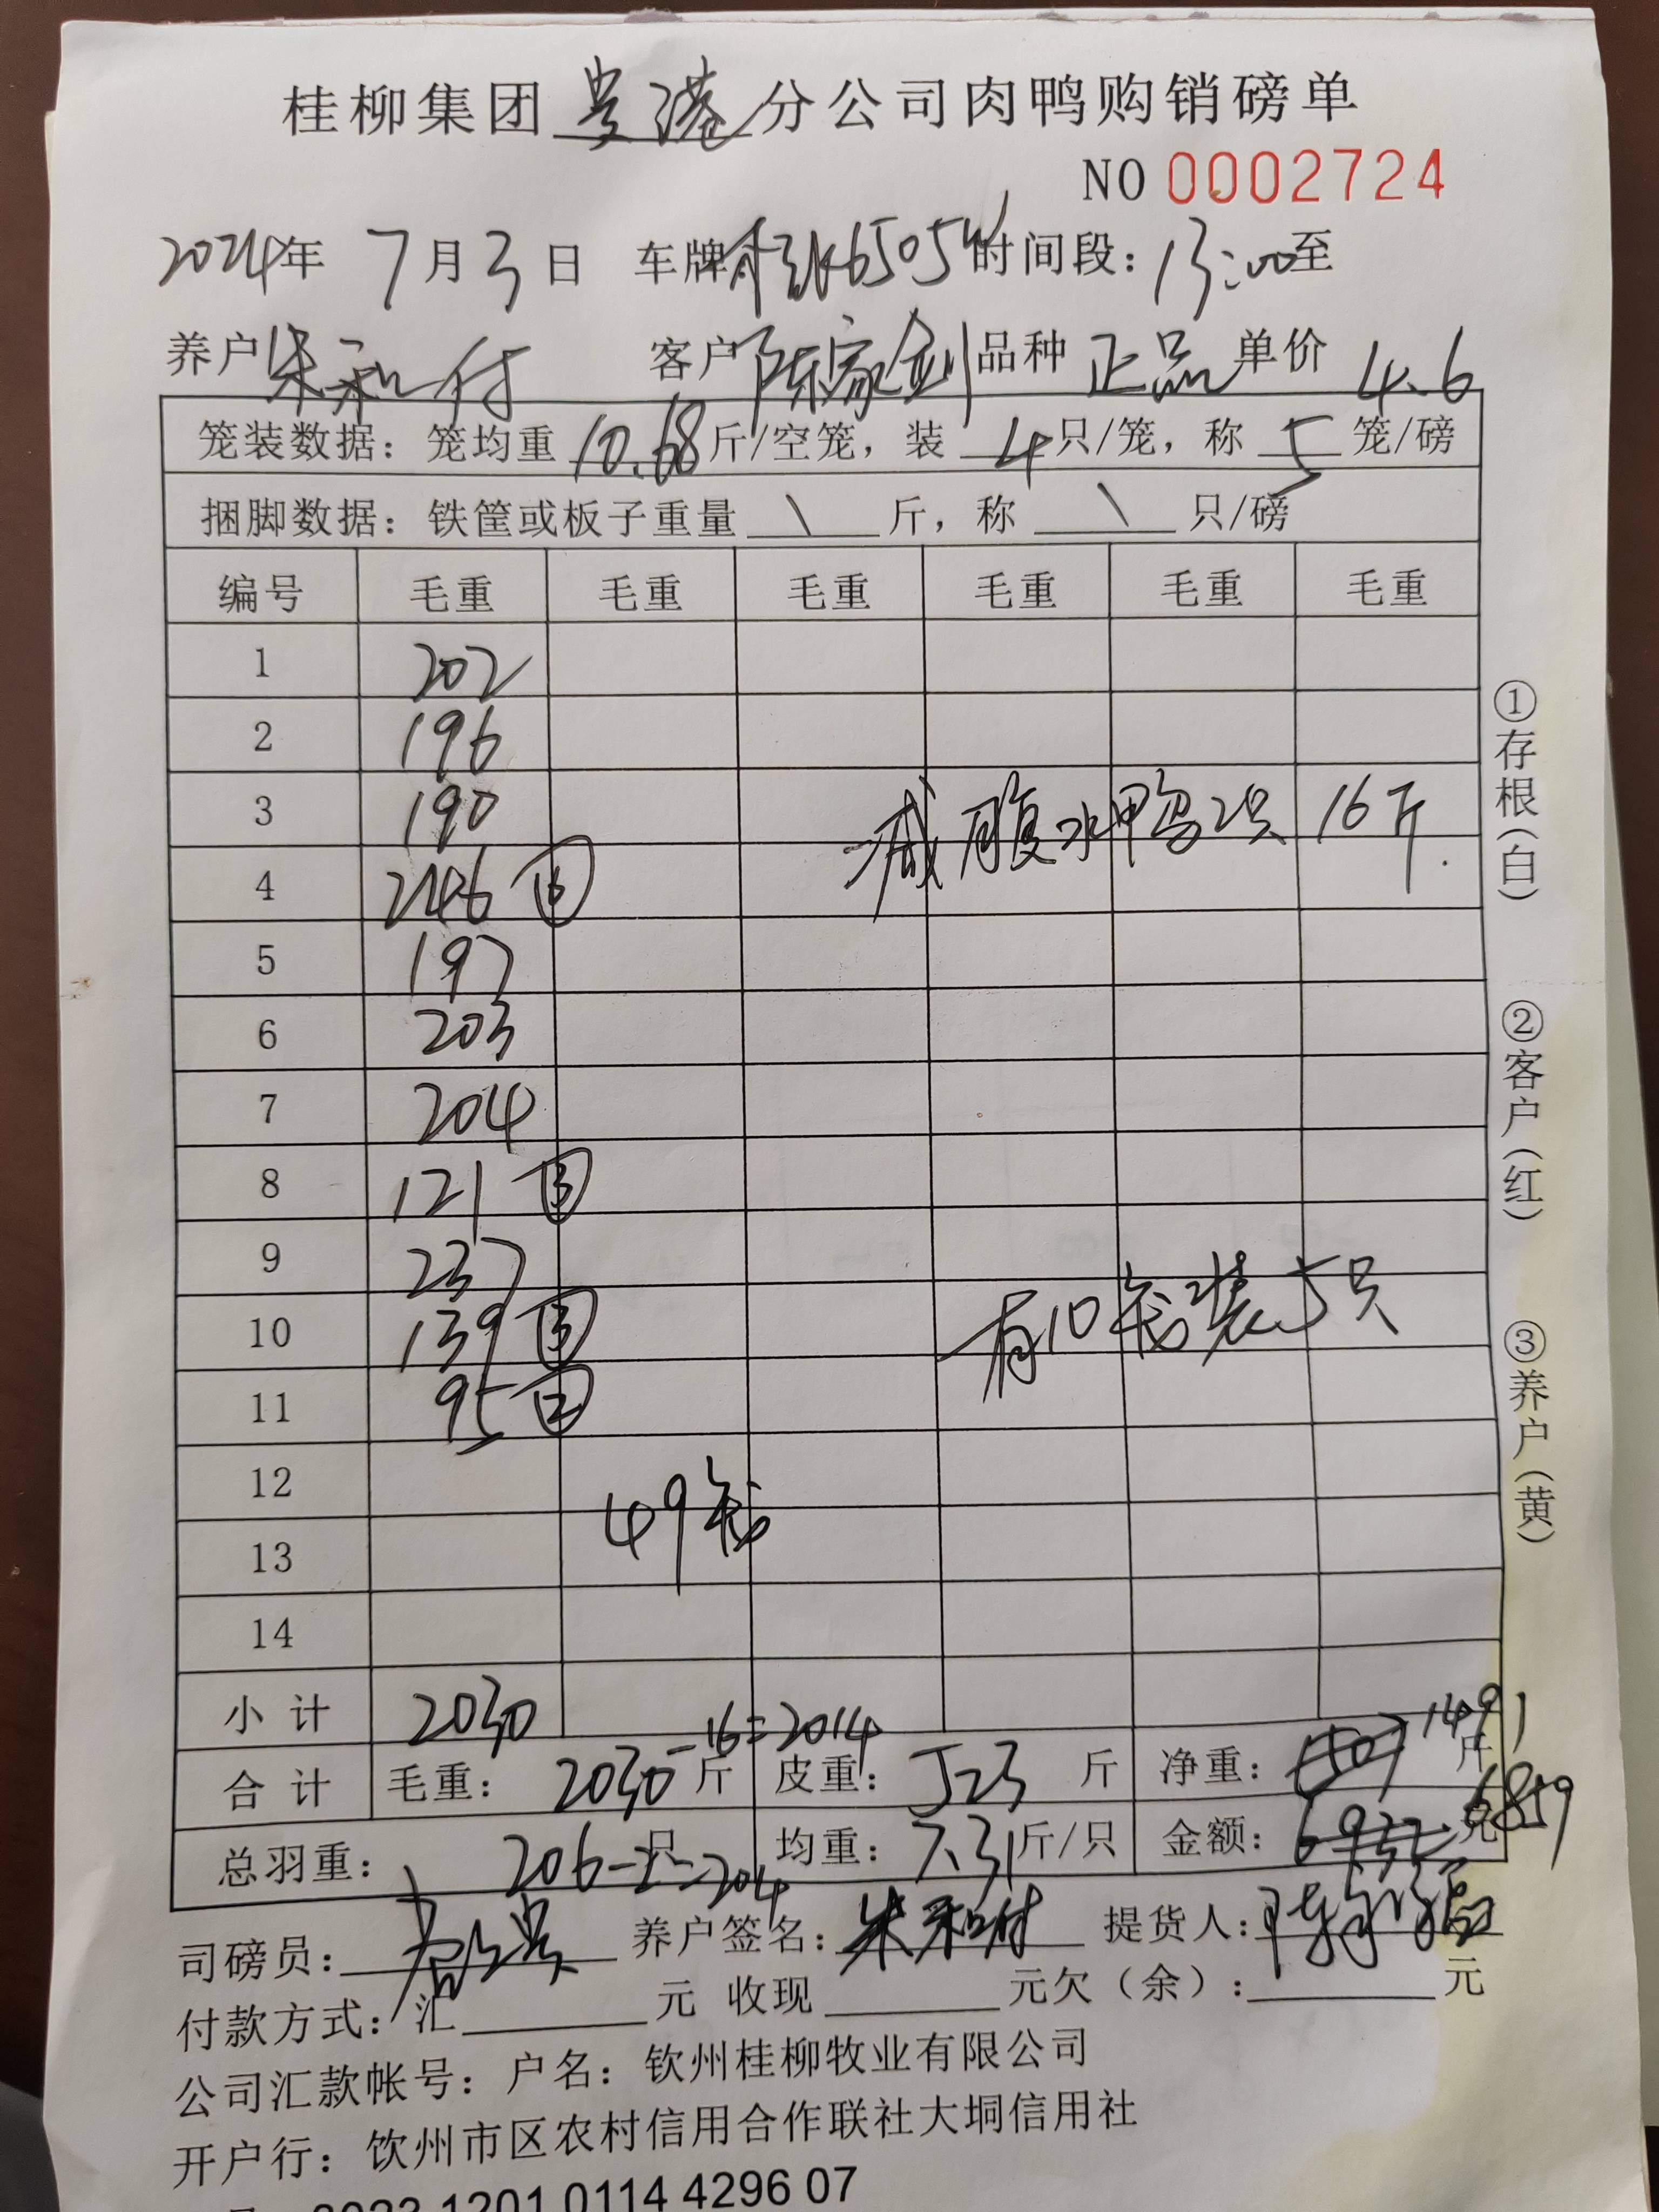 桂柳集团贵港分公司肉鸭购销磅单
NO 0002724
2024年 7月3日 车牌 65054 时间段：13:00至
养户 朱和付 客户 陈家剑 品种 正品 单价 4.6
笼装数据：笼均重 10.68 斤/空笼，装 4 只/笼，称 5 笼/磅
捆脚数据：铁筐或板子重量 \ 斤，称 \ 只/磅
编号 毛重 毛重 毛重 毛重 毛重 毛重
1 202
2 196
3 190 减腹水鸭2只 16斤.
4 246 ⑥
5 197
6 203
7 204
8 121 ③
9 237
10 139 ③ 有10笼装5只
11 95 ②
12
49笼
13
14
小计 2030
合计 毛重：2030-16=2014 斤 皮重：523 斤 净重：1507 1491 斤
总羽重：206-2=204 只 均重：7.31 斤/只 金额：6932 6859 元
司磅员： 养户签名：朱和付 提货人：
付款方式：汇 元 收现 元欠（余）： 元
公司汇款帐号：户名：钦州桂柳牧业有限公司
开户行：钦州市区农村信用合作联社大垌信用社
1201 0114 4296 07
①存根（白）
②客户（红）
③养户（黄）